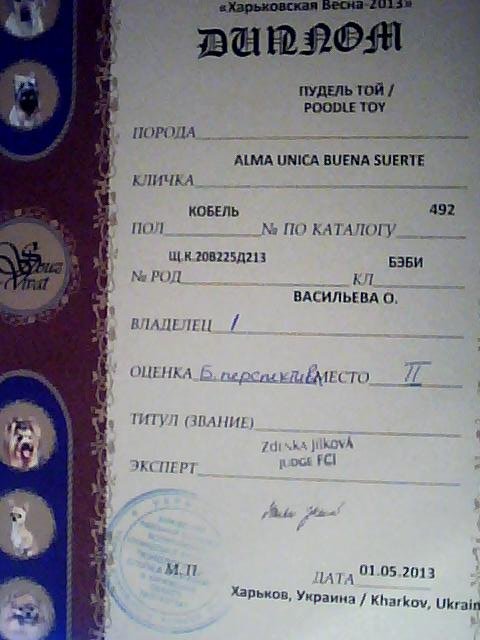 «Харьковская Весна-2013»
ДИПЛОМ
ПУДЕЛЬ ТОЙ /
POODLE TOY
ПОРОДА
ALMA UNICA BUENA SUERTE
КЛИЧКА
КОБЕЛЬ 492
ПОЛ № ПО КАТАЛОГУ
Щ.К.20В225Д213 БЭБИ
№ РОД КЛ
ВАСИЛЬЕВА О.
ВЛАДЕЛЕЦ
ОЦЕНКА Б.перспектив МЕСТО II
ТИТУЛ (ЗВАНИЕ)
Zdenka Jílková
JUDGE FCI
ЭКСПЕРТ
М.П.
01.05.2013
ДАТА
Харьков, Украина / Kharkov, Ukrain